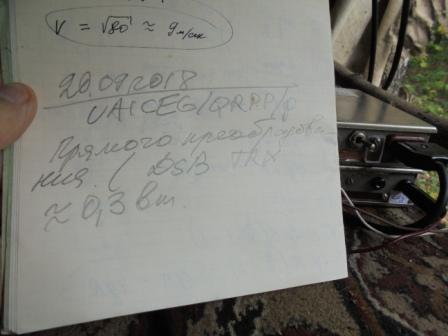 V = √80 ≈ 9 м/сек
20.09.2018
UA1CEG/QRPP/p
Прямого преобразова-
ния. ( DSB TRX
≈ 0,3 вт.